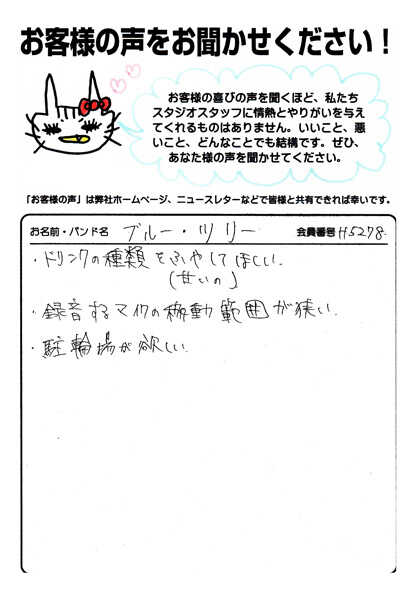 お客様の声をお聞かせください！
お客様の喜びの声を聞くほど、私たち
スタジオスタッフに情熱とやりがいを与え
てくれるものはありません。いいこと、悪
いこと、どんなことでも結構です。ぜひ、
あなた様の声を聞かせてください。
「お客様の声」は弊社ホームページ、ニュースレターなどで皆様と共有できれば幸いです。
お名前・バンド名 ブルー・ツリー 会員番号 H5278
・ドリンクの種類をふやしてほしい.
(甘いの)
・録音するマイクの稼動範囲が狭い.
・駐輪場が欲しい.